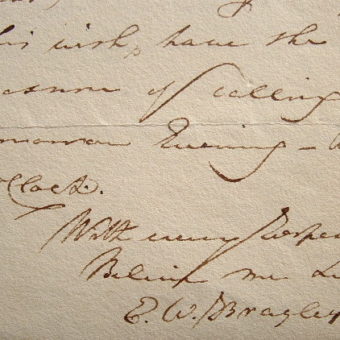 his wish, have the
easure of calling
morrow Evening – 
o'Clock.
With every Respe
Believe me
E. W. Brayley